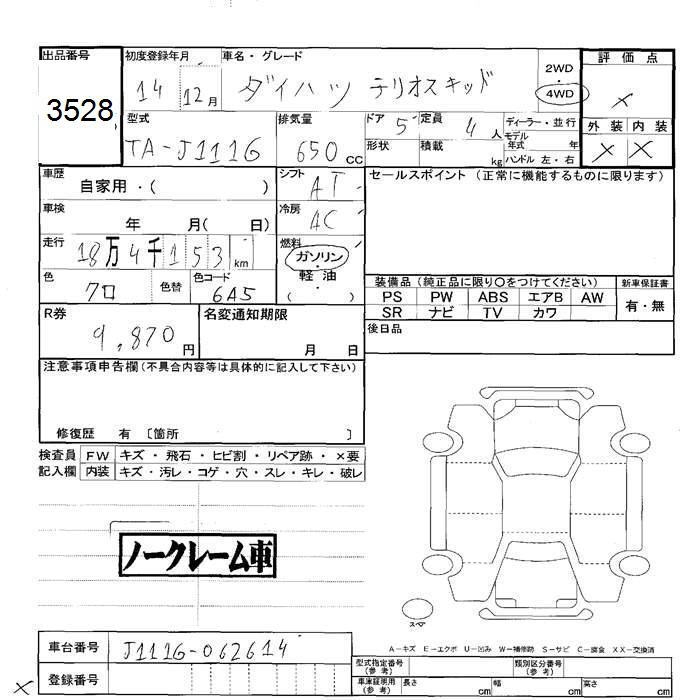 出品番号
3528
初度登録年月
14 12月
車名・グレード
ダイハツ テリオスキッド
2WD
・
4WD
評価点
×
外装 内装
× ×
型式
TA-J111G
排気量
650 CC
ドア 5
定員 4人
ディーラー・並行
モデル
年式 年
形状
積載 kg
ハンドル 左・右
車歴
自家用・( )
シフト
AT
セールスポイント (正常に機能するものに限ります)
車検
年 月( 日)
冷房
AC
走行
18万4千153km
燃料
ガソリン
・
軽油
( )
色
クロ
色替
色コード
6A5
装備品 (純正品に限り○をつけてください)
PS PW ABS エアB AW
SR ナビ TV カワ
新車保証書
有・無
R券
9,870円
名変通知期限
月 日
後日品
注意事項申告欄(不具合内容等は具体的に記入して下さい)
修復歴 有 〔箇所 〕
検査員
記入欄
FW キズ・飛石・ヒビ割・リペア跡・×要
内装 キズ・汚レ・コゲ・穴・スレ・キレ・破レ
ノークレーム車
スペア
A-キズ E-エクボ U-凹み W-補修跡 S-サビ C-腐食 XX-交換済
車台番号
J111G-062614
登録番号
×
型式指定番号
(参考)
類別区分番号
(参考)
車庫証明用
(参考)
長さ cm
幅 cm
高さ cm